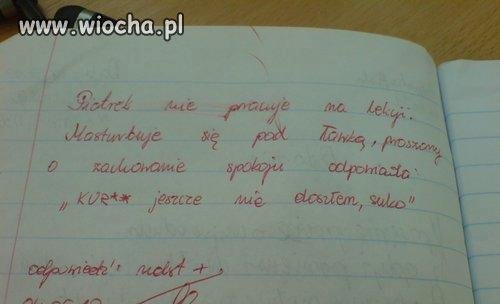 www.wiocha.pl
Piotrek nie pracuje na lekcji.
Masturbuje się pod ławką, proszony
o zachowanie spokoju odpowiada:
„KUR** jeszcze nie doszłem, suko"
odpowiedź: ndst +,